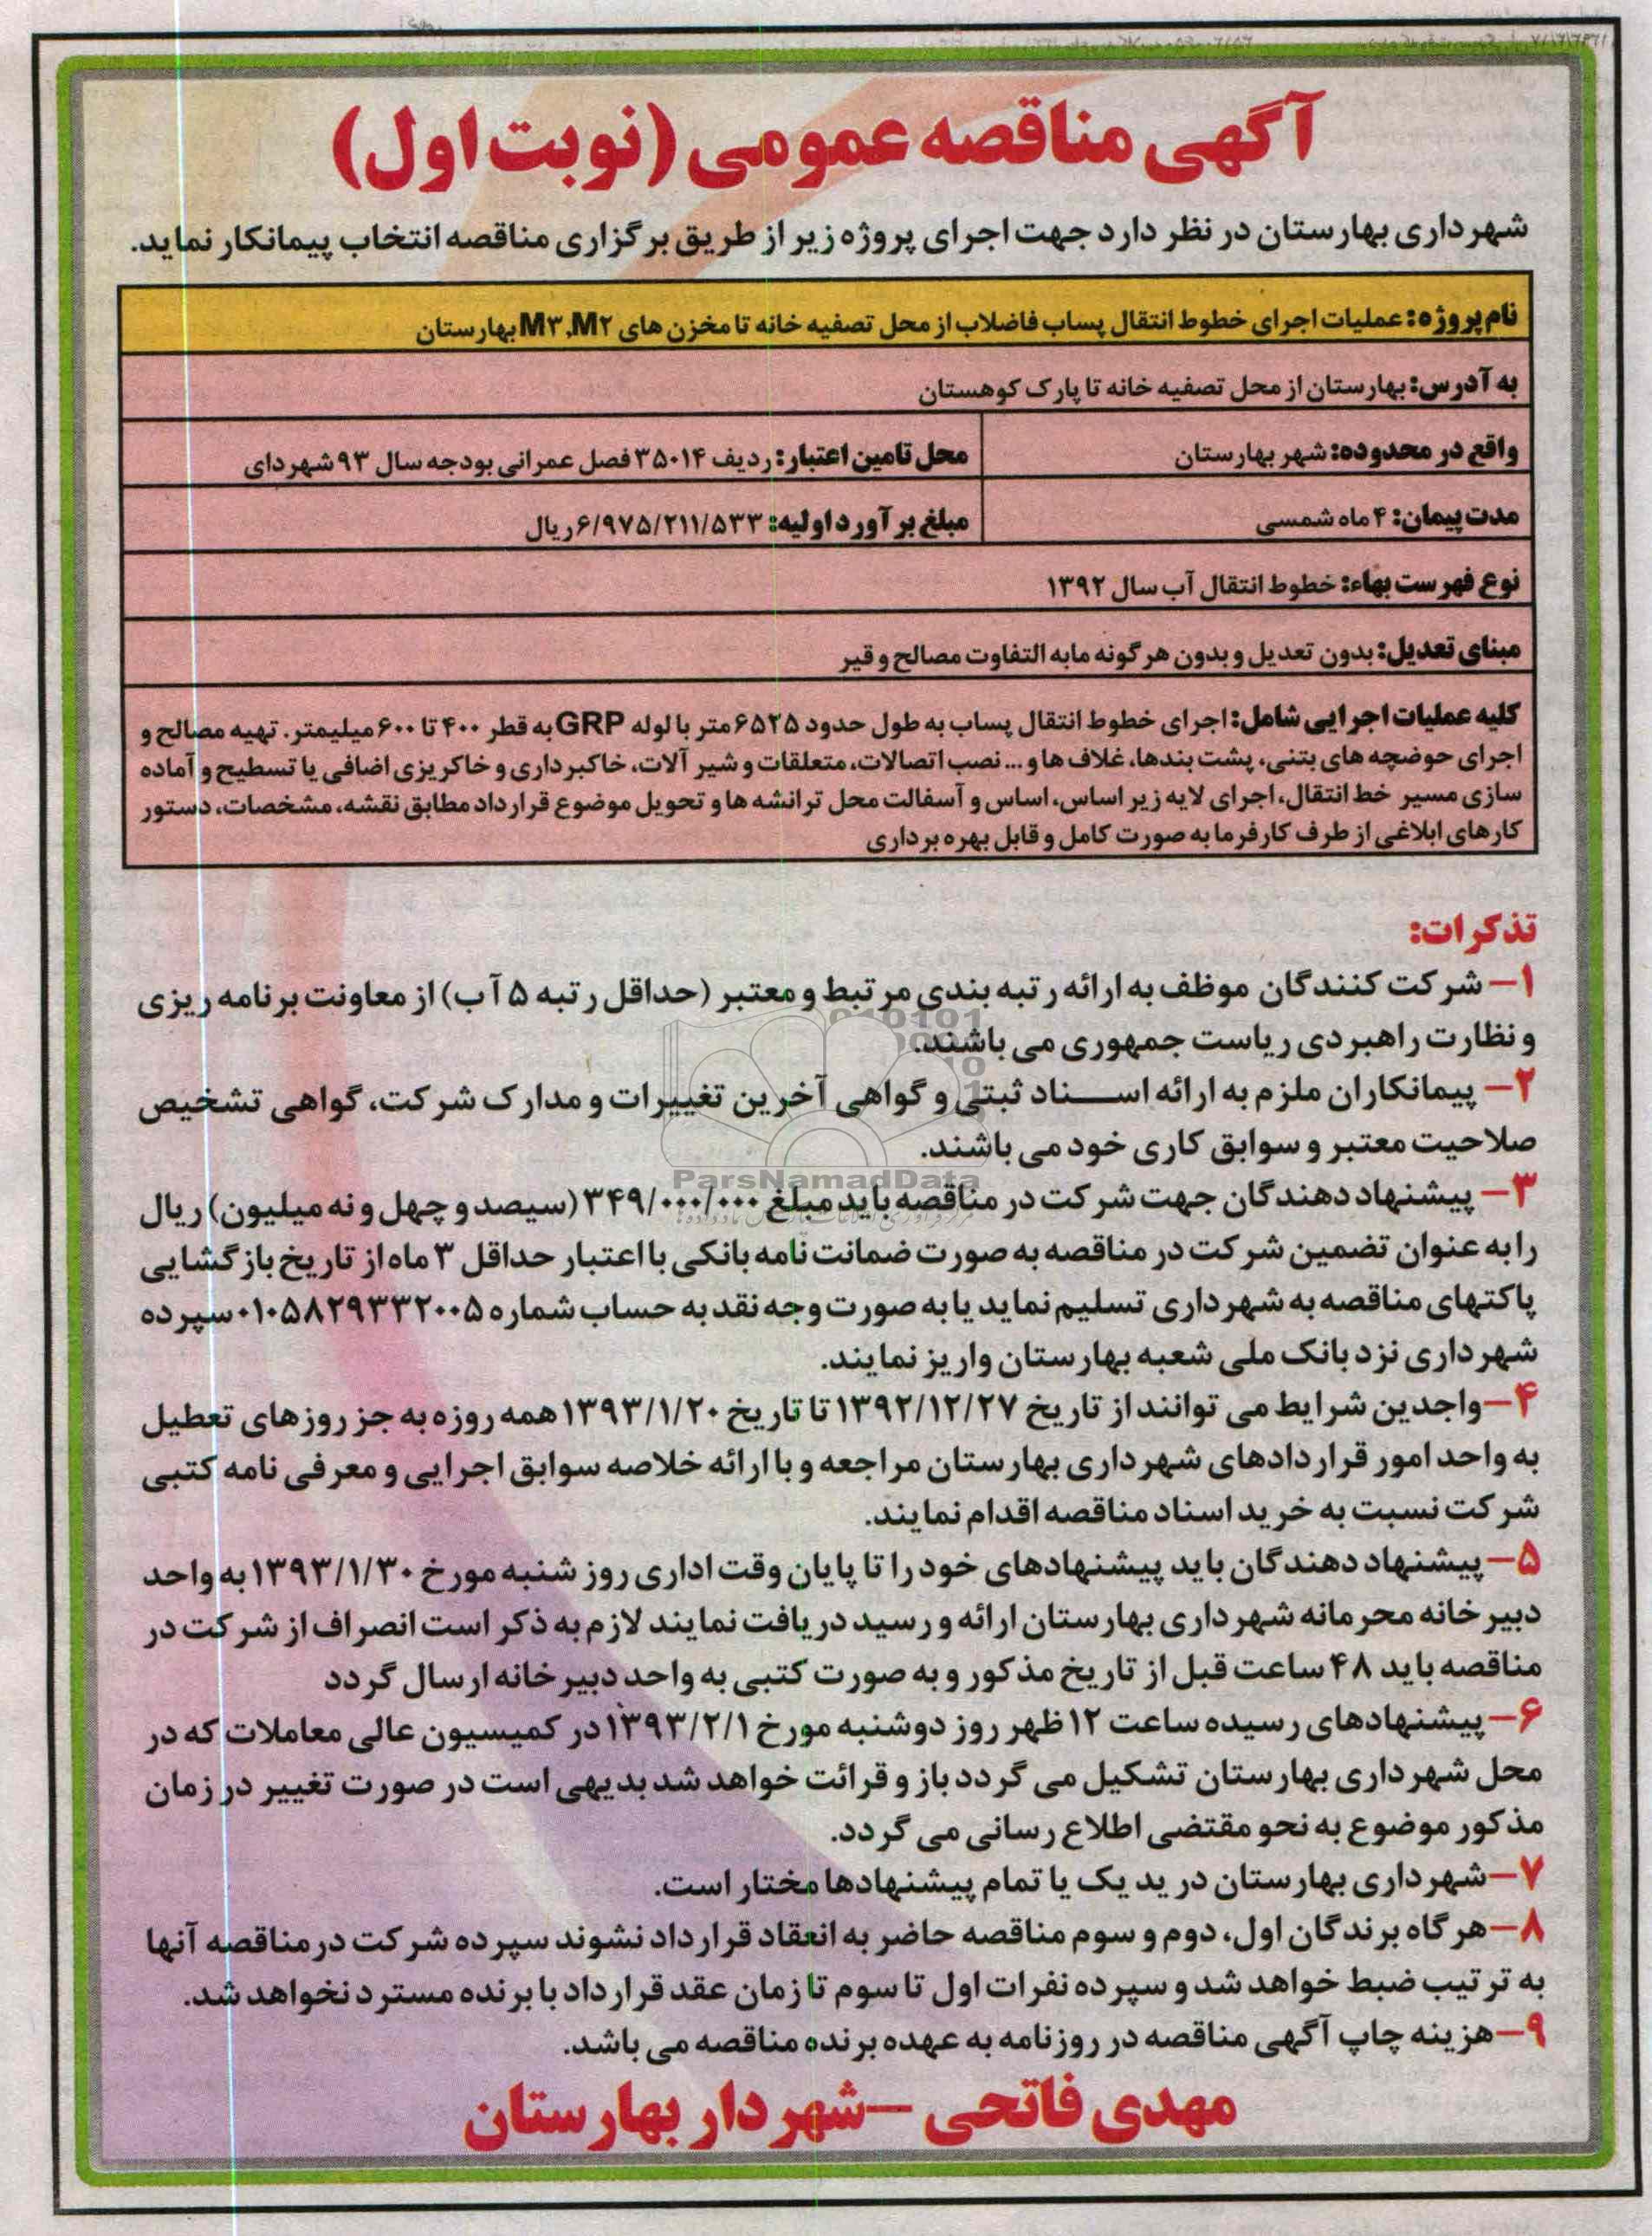 آگهی مناقصه عمومی (نوبت اول)
شهرداری بهارستان در نظر دارد جهت اجرای پروژه زیر از طریق برگزاری مناقصه انتخاب پیمانکار نماید.
نام پروژه: عملیات اجرای خطوط انتقال پساب فاضلاب از محل تصفیه خانه تا مخزن های M۳،M۲ بهارستان
به آدرس: بهارستان از محل تصفیه خانه تا پارک کوهستان
واقع در محدوده: شهر بهارستان
محل تامین اعتبار: ردیف ۳۵۰۱۴ فصل عمرانی بودجه سال ۹۳ شهردای
مدت پیمان: ۴ ماه شمسی
مبلغ برآورد اولیه: ۶/۹۷۵/۲۱۱/۵۳۳ ریال
نوع فهرست بهاء: خطوط انتقال آب سال ۱۳۹۲
مبنای تعدیل: بدون تعدیل و بدون هرگونه مابه التفاوت مصالح و قیر
کلیه عملیات اجرایی شامل: اجرای خطوط انتقال پساب به طول حدود ۶۵۲۵ متر با لوله GRP به قطر ۴۰۰ تا ۶۰۰ میلیمتر. تهیه مصالح و
اجرای حوضچه های بتنی، پشت بندها، غلاف ها و ... نصب اتصالات، متعلقات و شیر آلات، خاکبرداری و خاکریزی اضافی یا تسطیح و آماده
سازی مسیر خط انتقال، اجرای لایه زیر اساس، اساس و آسفالت محل ترانشه ها و تحویل موضوع قرارداد مطابق نقشه، مشخصات، دستور
کارهای ابلاغی از طرف کارفرما به صورت کامل و قابل بهره برداری
تذکرات:
۱- شرکت کنندگان موظف به ارائه رتبه بندی مرتبط و معتبر (حداقل رتبه ۵ آب) از معاونت برنامه ریزی
و نظارت راهبردی ریاست جمهوری می باشند.
۲- پیمانکاران ملزم به ارائه اسناد ثبتی و گواهی آخرین تغییرات و مدارک شرکت، گواهی تشخیص
صلاحیت معتبر و سوابق کاری خود می باشند.
ParsNamadData
۳- پیشنهاد دهندگان جهت شرکت در مناقصه باید مبلغ ۳۴۹/۰۰۰/۰۰۰ (سیصد و چهل و نه میلیون) ریال
را به عنوان تضمین شرکت در مناقصه به صورت ضمانت نامه بانکی با اعتبار حداقل ۳ ماه از تاریخ بازگشایی
پاکتهای مناقصه به شهرداری تسلیم نماید یا به صورت وجه نقد به حساب شماره ۰۱۰۵۸۲۹۳۳۲۰۰۵ سپرده
شهرداری نزد بانک ملی شعبه بهارستان واریز نمایند.
۴- واجدین شرایط می توانند از تاریخ ۱۳۹۲/۱۲/۲۷ تا تاریخ ۱۳۹۳/۱/۲۰ همه روزه به جز روزهای تعطیل
به واحد امور قراردادهای شهرداری بهارستان مراجعه و با ارائه خلاصه سوابق اجرایی و معرفی نامه کتبی
شرکت نسبت به خرید اسناد مناقصه اقدام نمایند.
۵- پیشنهاد دهندگان باید پیشنهادهای خود را تا پایان وقت اداری روز شنبه مورخ ۱۳۹۳/۱/۳۰ به واحد
دبیرخانه محرمانه شهرداری بهارستان ارائه و رسید دریافت نمایند لازم به ذکر است انصراف از شرکت در
مناقصه باید ۴۸ ساعت قبل از تاریخ مذکور و به صورت کتبی به واحد دبیرخانه ارسال گردد
۶- پیشنهادهای رسیده ساعت ۱۲ ظهر روز دوشنبه مورخ ۱۳۹۳/۲/۱ در کمیسیون عالی معاملات که در
محل شهرداری بهارستان تشکیل می گردد باز و قرائت خواهد شد بدیهی است در صورت تغییر در زمان
مذکور موضوع به نحو مقتضی اطلاع رسانی می گردد.
۷- شهرداری بهارستان در ید یک یا تمام پیشنهادها مختار است.
۸- هرگاه برندگان اول، دوم و سوم مناقصه حاضر به انعقاد قرارداد نشوند سپرده شرکت در مناقصه آنها
به ترتیب ضبط خواهد شد و سپرده نفرات اول تا سوم تا زمان عقد قرارداد با برنده مسترد نخواهد شد.
۹- هزینه چاپ آگهی مناقصه در روزنامه به عهده برنده مناقصه می باشد.
مهدی فاتحی - شهردار بهارستان